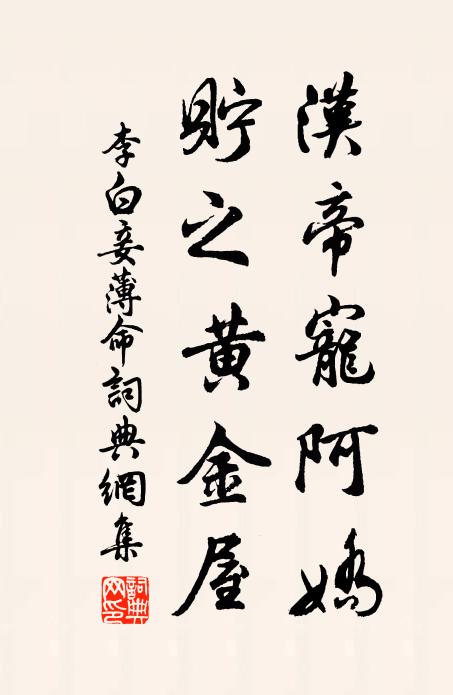 漢帝寵阿嬌
貯之黄金屋
李白妾薄命詞典網集
詞典网印